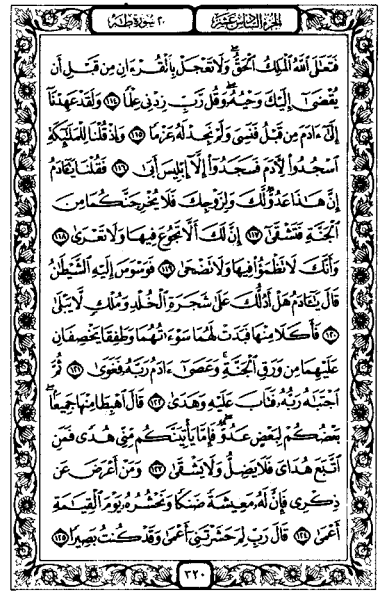 الجزء السادس عشر ٢٠ سورة طه
فَتَعَٰلَى ٱللَّهُ ٱلْمَلِكُ ٱلْحَقُّ ۗ وَلَا تَعْجَلْ بِٱلْقُرْءَانِ مِن قَبْلِ أَن
يُقْضَىٰٓ إِلَيْكَ وَحْيُهُۥ ۖ وَقُل رَّبِّ زِدْنِى عِلْمًا ١١٤ وَلَقَدْ عَهِدْنَآ
إِلَىٰٓ ءَادَمَ مِن قَبْلُ فَنَسِىَ وَلَمْ نَجِدْ لَهُۥ عَزْمًا ١١٥ وَإِذْ قُلْنَا لِلْمَلَٰٓئِكَةِ
ٱسْجُدُوا۟ لِءَادَمَ فَسَجَدُوٓا۟ إِلَّآ إِبْلِيسَ أَبَىٰ ١١٦ فَقُلْنَا يَٰٓـَٔادَمُ
إِنَّ هَٰذَا عَدُوٌّ لَّكَ وَلِزَوْجِكَ فَلَا يُخْرِجَنَّكُمَا مِنَ
ٱلْجَنَّةِ فَتَشْقَىٰٓ ١١٧ إِنَّ لَكَ أَلَّا تَجُوعَ فِيهَا وَلَا تَعْرَىٰ ١١٨
وَأَنَّكَ لَا تَظْمَؤُا۟ فِيهَا وَلَا تَضْحَىٰ ١١٩ فَوَسْوَسَ إِلَيْهِ ٱلشَّيْطَٰنُ
قَالَ يَٰٓـَٔادَمُ هَلْ أَدُلُّكَ عَلَىٰ شَجَرَةِ ٱلْخُلْدِ وَمُلْكٍ لَّا يَبْلَىٰ
١٢٠ فَأَكَلَا مِنْهَا فَبَدَتْ لَهُمَا سَوْءَٰتُهُمَا وَطَفِقَا يَخْصِفَانِ
عَلَيْهِمَا مِن وَرَقِ ٱلْجَنَّةِ ۚ وَعَصَىٰٓ ءَادَمُ رَبَّهُۥ فَغَوَىٰ ١٢١ ثُمَّ
ٱجْتَبَٰهُ رَبُّهُۥ فَتَابَ عَلَيْهِ وَهَدَىٰ ١٢٢ قَالَ ٱهْبِطَا مِنْهَا جَمِيعًۢا ۖ
بَعْضُكُمْ لِبَعْضٍ عَدُوٌّ ۖ فَإِمَّا يَأْتِيَنَّكُم مِّنِّى هُدًى فَمَنِ
ٱتَّبَعَ هُدَاىَ فَلَا يَضِلُّ وَلَا يَشْقَىٰ ١٢٣ وَمَنْ أَعْرَضَ عَن
ذِكْرِى فَإِنَّ لَهُۥ مَعِيشَةً ضَنكًا وَنَحْشُرُهُۥ يَوْمَ ٱلْقِيَٰمَةِ
أَعْمَىٰ ١٢٤ قَالَ رَبِّ لِمَ حَشَرْتَنِىٓ أَعْمَىٰ وَقَدْ كُنتُ بَصِيرًا ١٢٥
٣٢٠